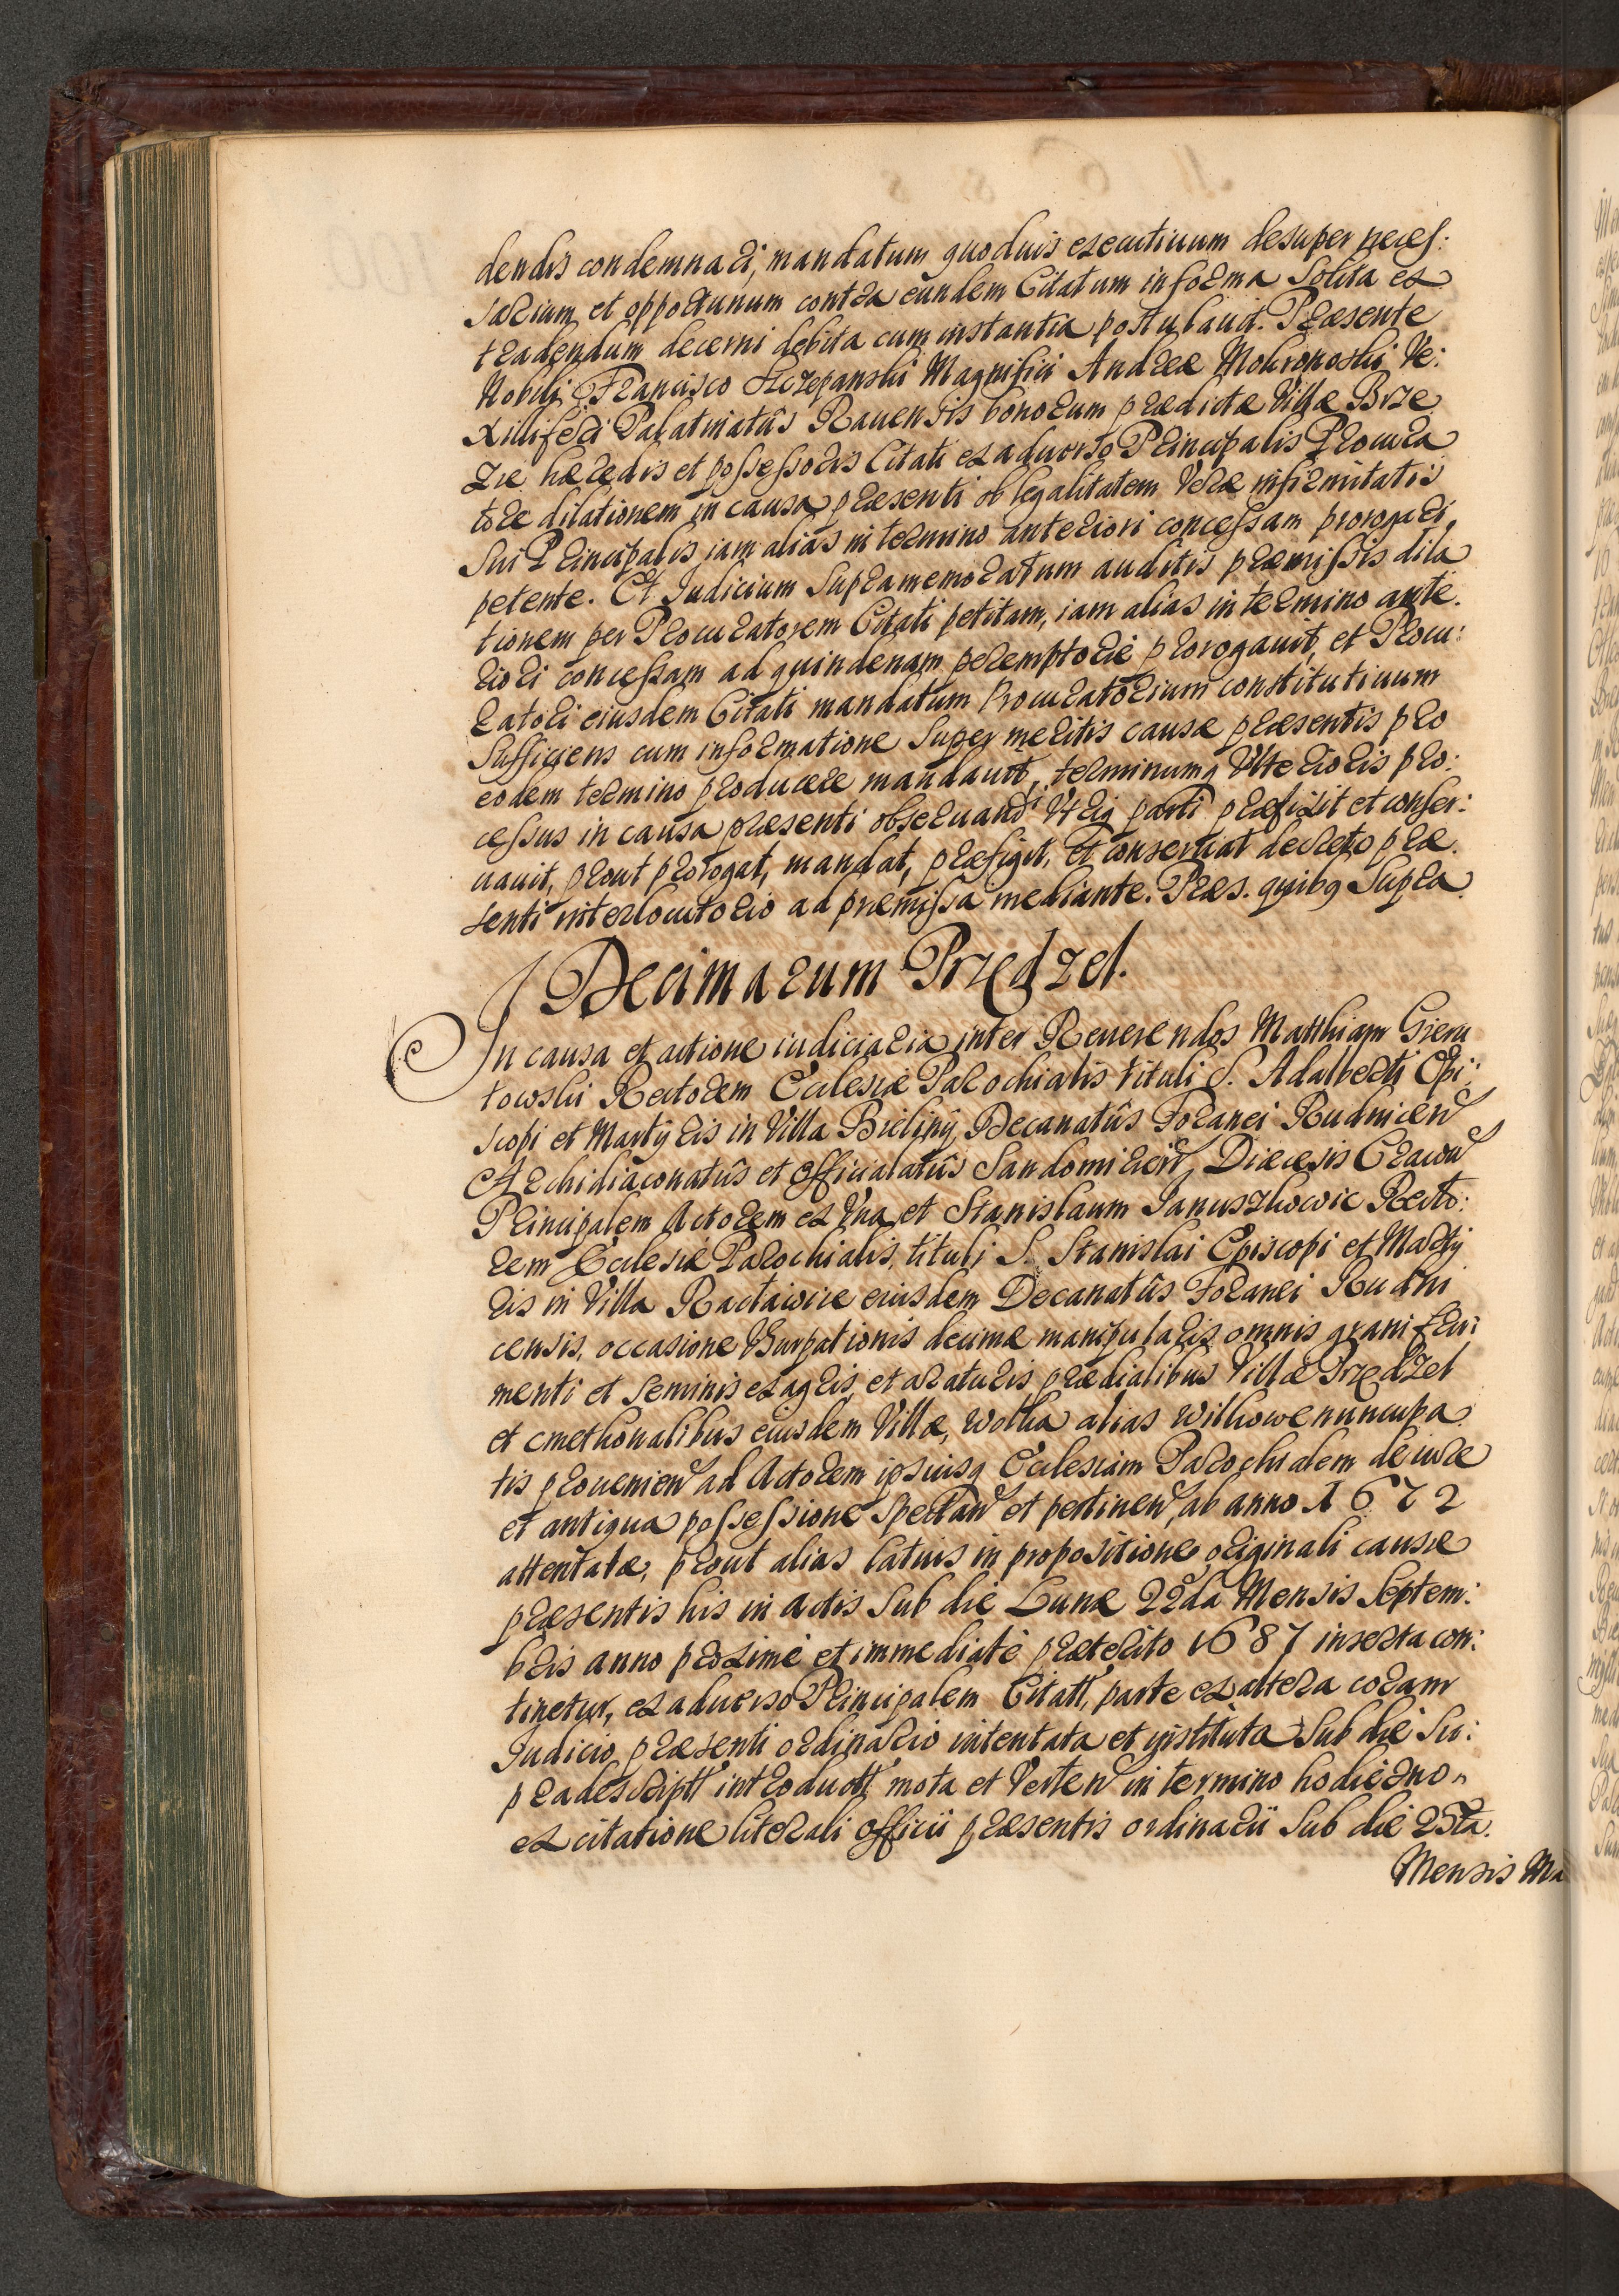 dendis condemnari, mandatum quoduis executiuum desuper neces:
sarium et opportunum contra eundem Citatum in forma Solita ex
tradendum decerni debita cum instantia postulauit. Præsente
Nobili Francisco Szczepanski Magnifici Andreæ Mokronoski Ve:
xilliferi Palatinatûs Rauensis bonorum prædictæ Villæ Brze
zie hæredis et possessoris Citati ex aduerso Principalis Procura
tore dilationem in causa præsenti ob legalitatem Veræ infirmitatis
Sui Principalis iam alias in termino anteriori concessam prorogari
petente. Et Iudicium Supramemoratum auditis præmissis dila
tionem per Procuratorem Citati petitam, iam alias in termino ante.
riori concessam ad quindenam peremptorie prorogauit, et Procu:
ratori eiusdem Citati mandatum Procuratorium constitutiuum
Sufficiens cum informatione Super meritis causæ præsentis pro
eodem termino producere mandauit, terminumq Vlterioris pro:
cessus in causa præsenti obseruandi Vtriq parti præfixit et conser:
uauit, prout prorogat, mandat, præfigit, et conseruat decreto præ.
senti interlocutorio ad præmissa mediante. Præs. quibq Supra
Decimarum Przędzel.
In causa et actione iudiciaria inter Reuerendos Matthiam Gieru
towski Rectorem Ecclesiæ Parochialis tituli S. Adalberti Epi:
scopi et Martyris in Villa Bieliny, Decanatûs Foranei Rudnicen
Archidiaconatûs et Officialatûs Sandomirien, Diæcesis Cracou
Principalem Actorem ex Vna, et Stanislaum Januszkowic Recto:
rem Ecclesiæ Parochialis, tituli S. Stanislai Episcopi et Marty
ris in Villa Racławice eiusdem Decanatûs Foranei Rudni
censis, occasione Vsurpationis decimæ manipularis omnis grani fru:
menti et Seminis ex agris, et araturis prædialibus Villæ Przędzel
et cmethonalibus eiusdem Villæ, Wolka alias Wilkowe nuncupa
tis prouenien ad Actorem ipsiusq Ecclesiam Parochialem de iure
et antiqua possessione Spectan et pertinen, ab anno 1672
attentatæ, prout alias latius in propositione originali causæ
præsentis his in actis Sub die Lunæ 22da Mensis Septem:
bris anno proximè et immediatè præterito 1687 inserta con:
tinetur, ex aduerso Principalem Citatt, parte ex altera coram
Iudicio præsenti ordinario intentata et instituta Sub die Su:
pradescriptt introductt mota et Verten in termino hodierno
ex citatione literali Officii præsentis ordinarii Sub die 25ta.
Mensis Ma